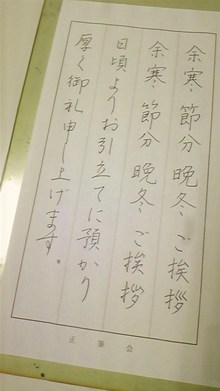 余寒節分晩冬ご挨拶
余寒節分晩冬ご挨拶
日頃よりお引立てに預かり
厚く御礼申し上げます。
正筆会